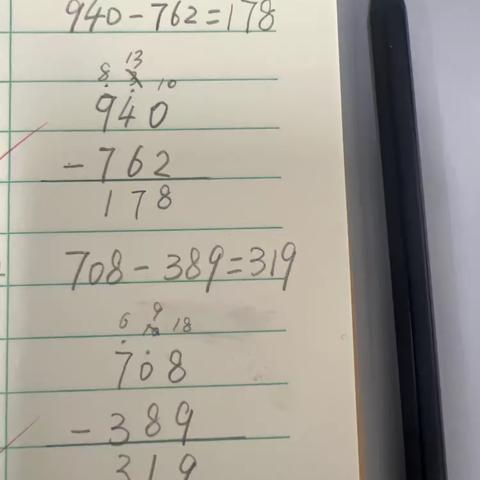 940-762=178
13
8 3 10
940
-762
178
708-389=319
9
6 10 18
708
-389
319